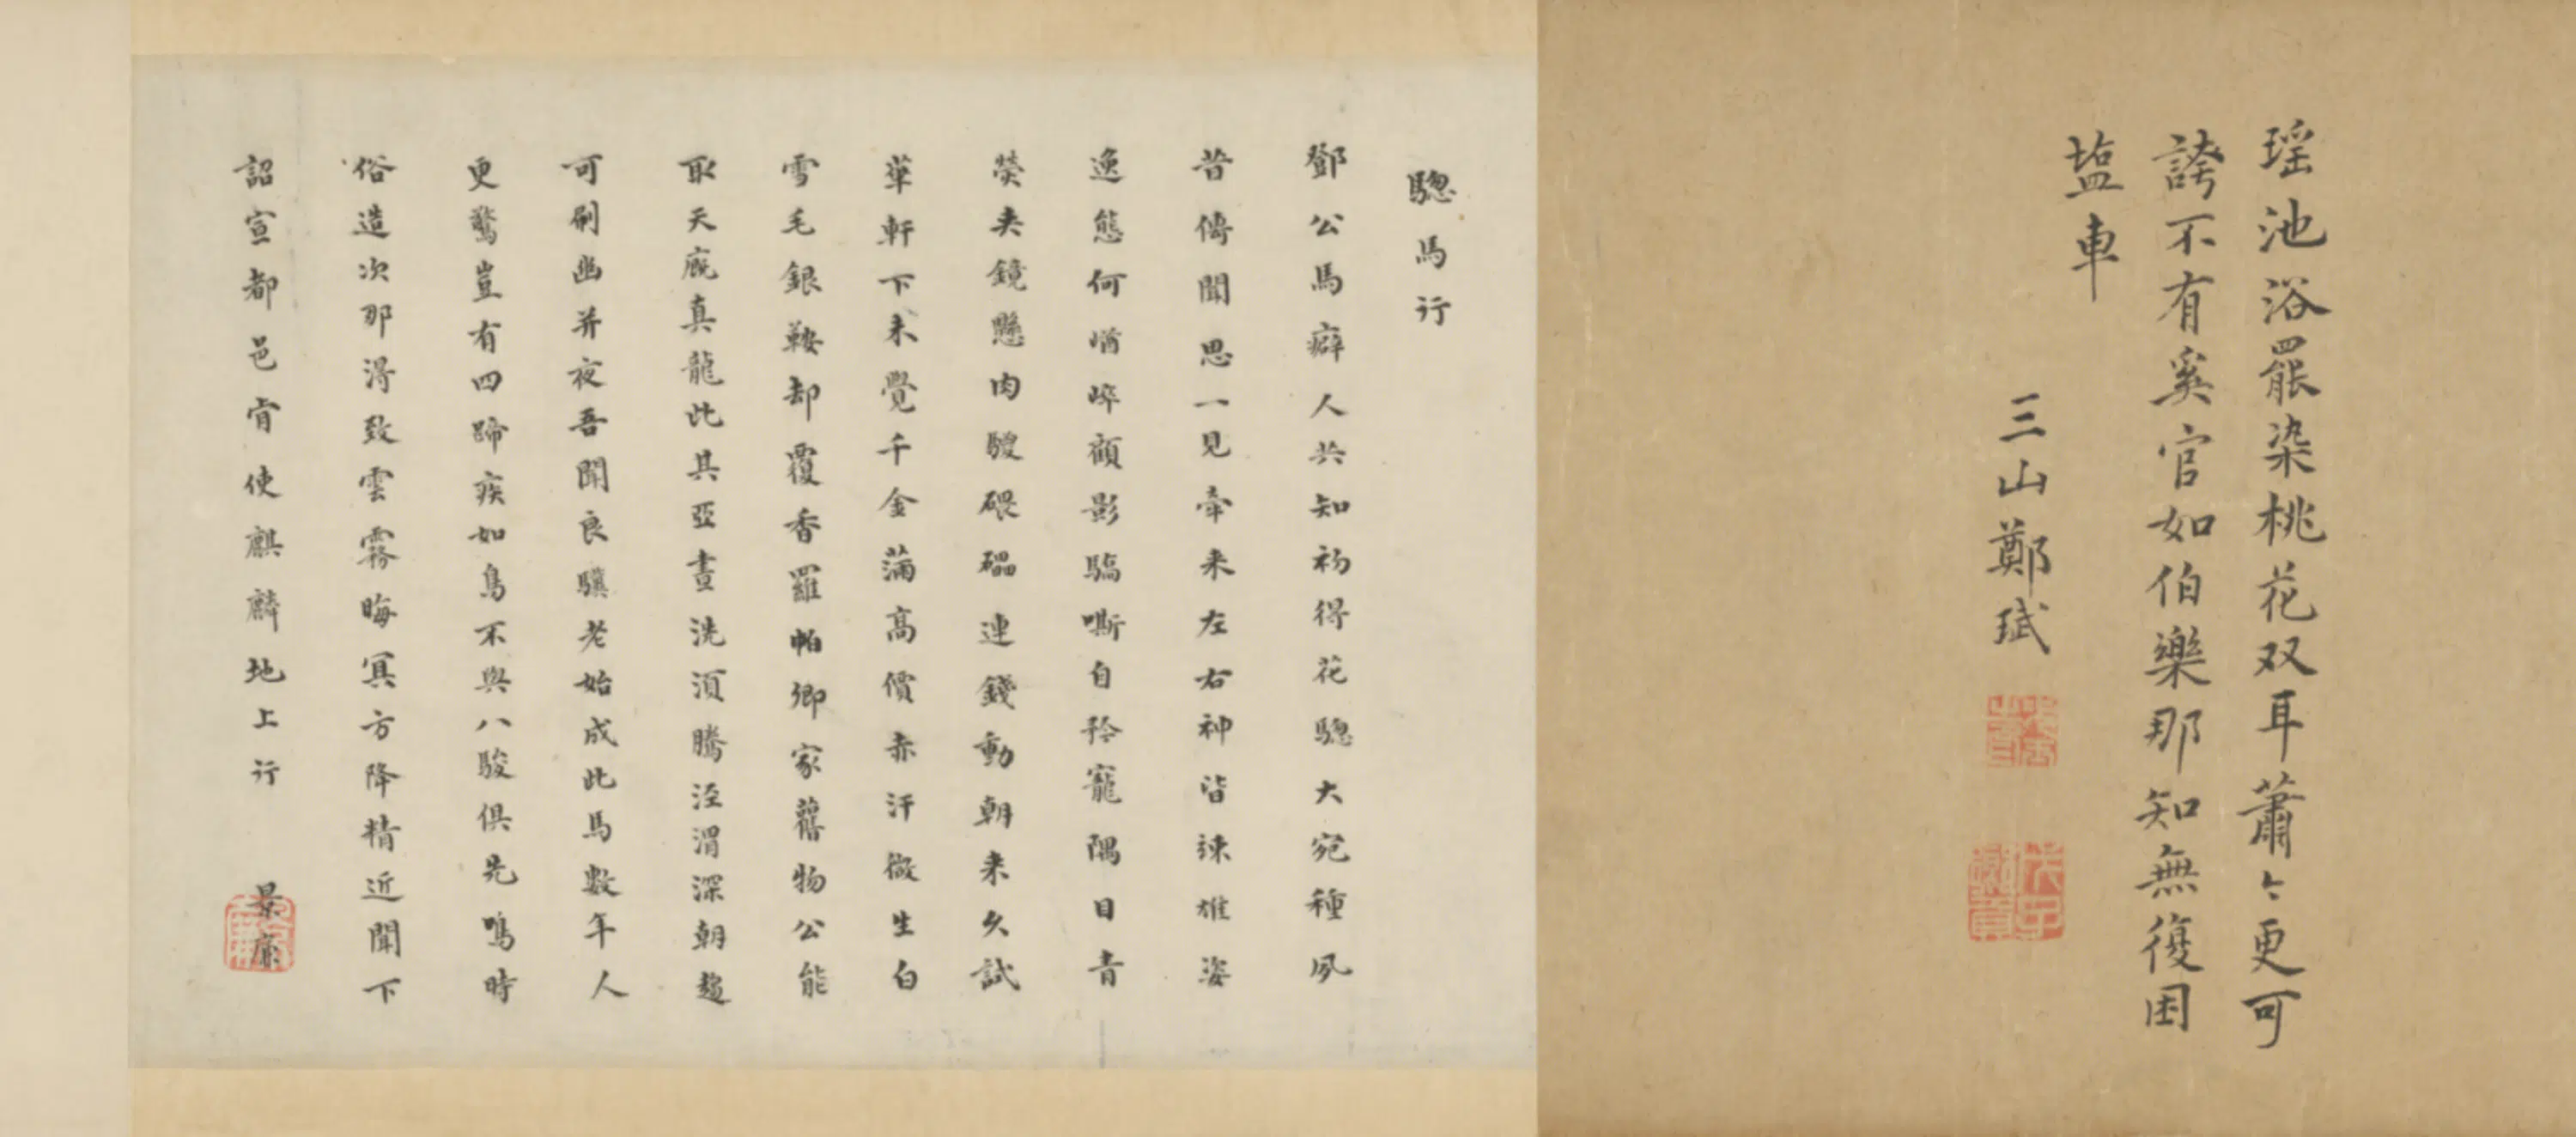 瑶池浴罷染桃花双耳蕭々更可
誇不有奚官如伯樂那知無復困
塩車
三山鄭珷
驄馬行
鄧公馬癖人共知初得花驄大宛種夙
昔傳聞思一見牽来左右神皆竦雄姿
逸態何崷崒顧影驕嘶自矜寵隅目青
熒夹鏡懸肉騣碨礧連錢動朝来久試
華軒下未覺千金滿高價赤汗微生白
雪毛銀鞍却覆香羅帕卿家舊物公能
取天廐真龍此其亞晝洗湏騰涇渭深朝趨
可刷幽并夜吾聞良驥老始成此馬數年人
更驚豈有四蹄疾如鳥不與八駿俱先鳴時
俗造次那得致雲霧晦冥方降精近聞下
詔宣都邑肯使麒麟地上行
景廉